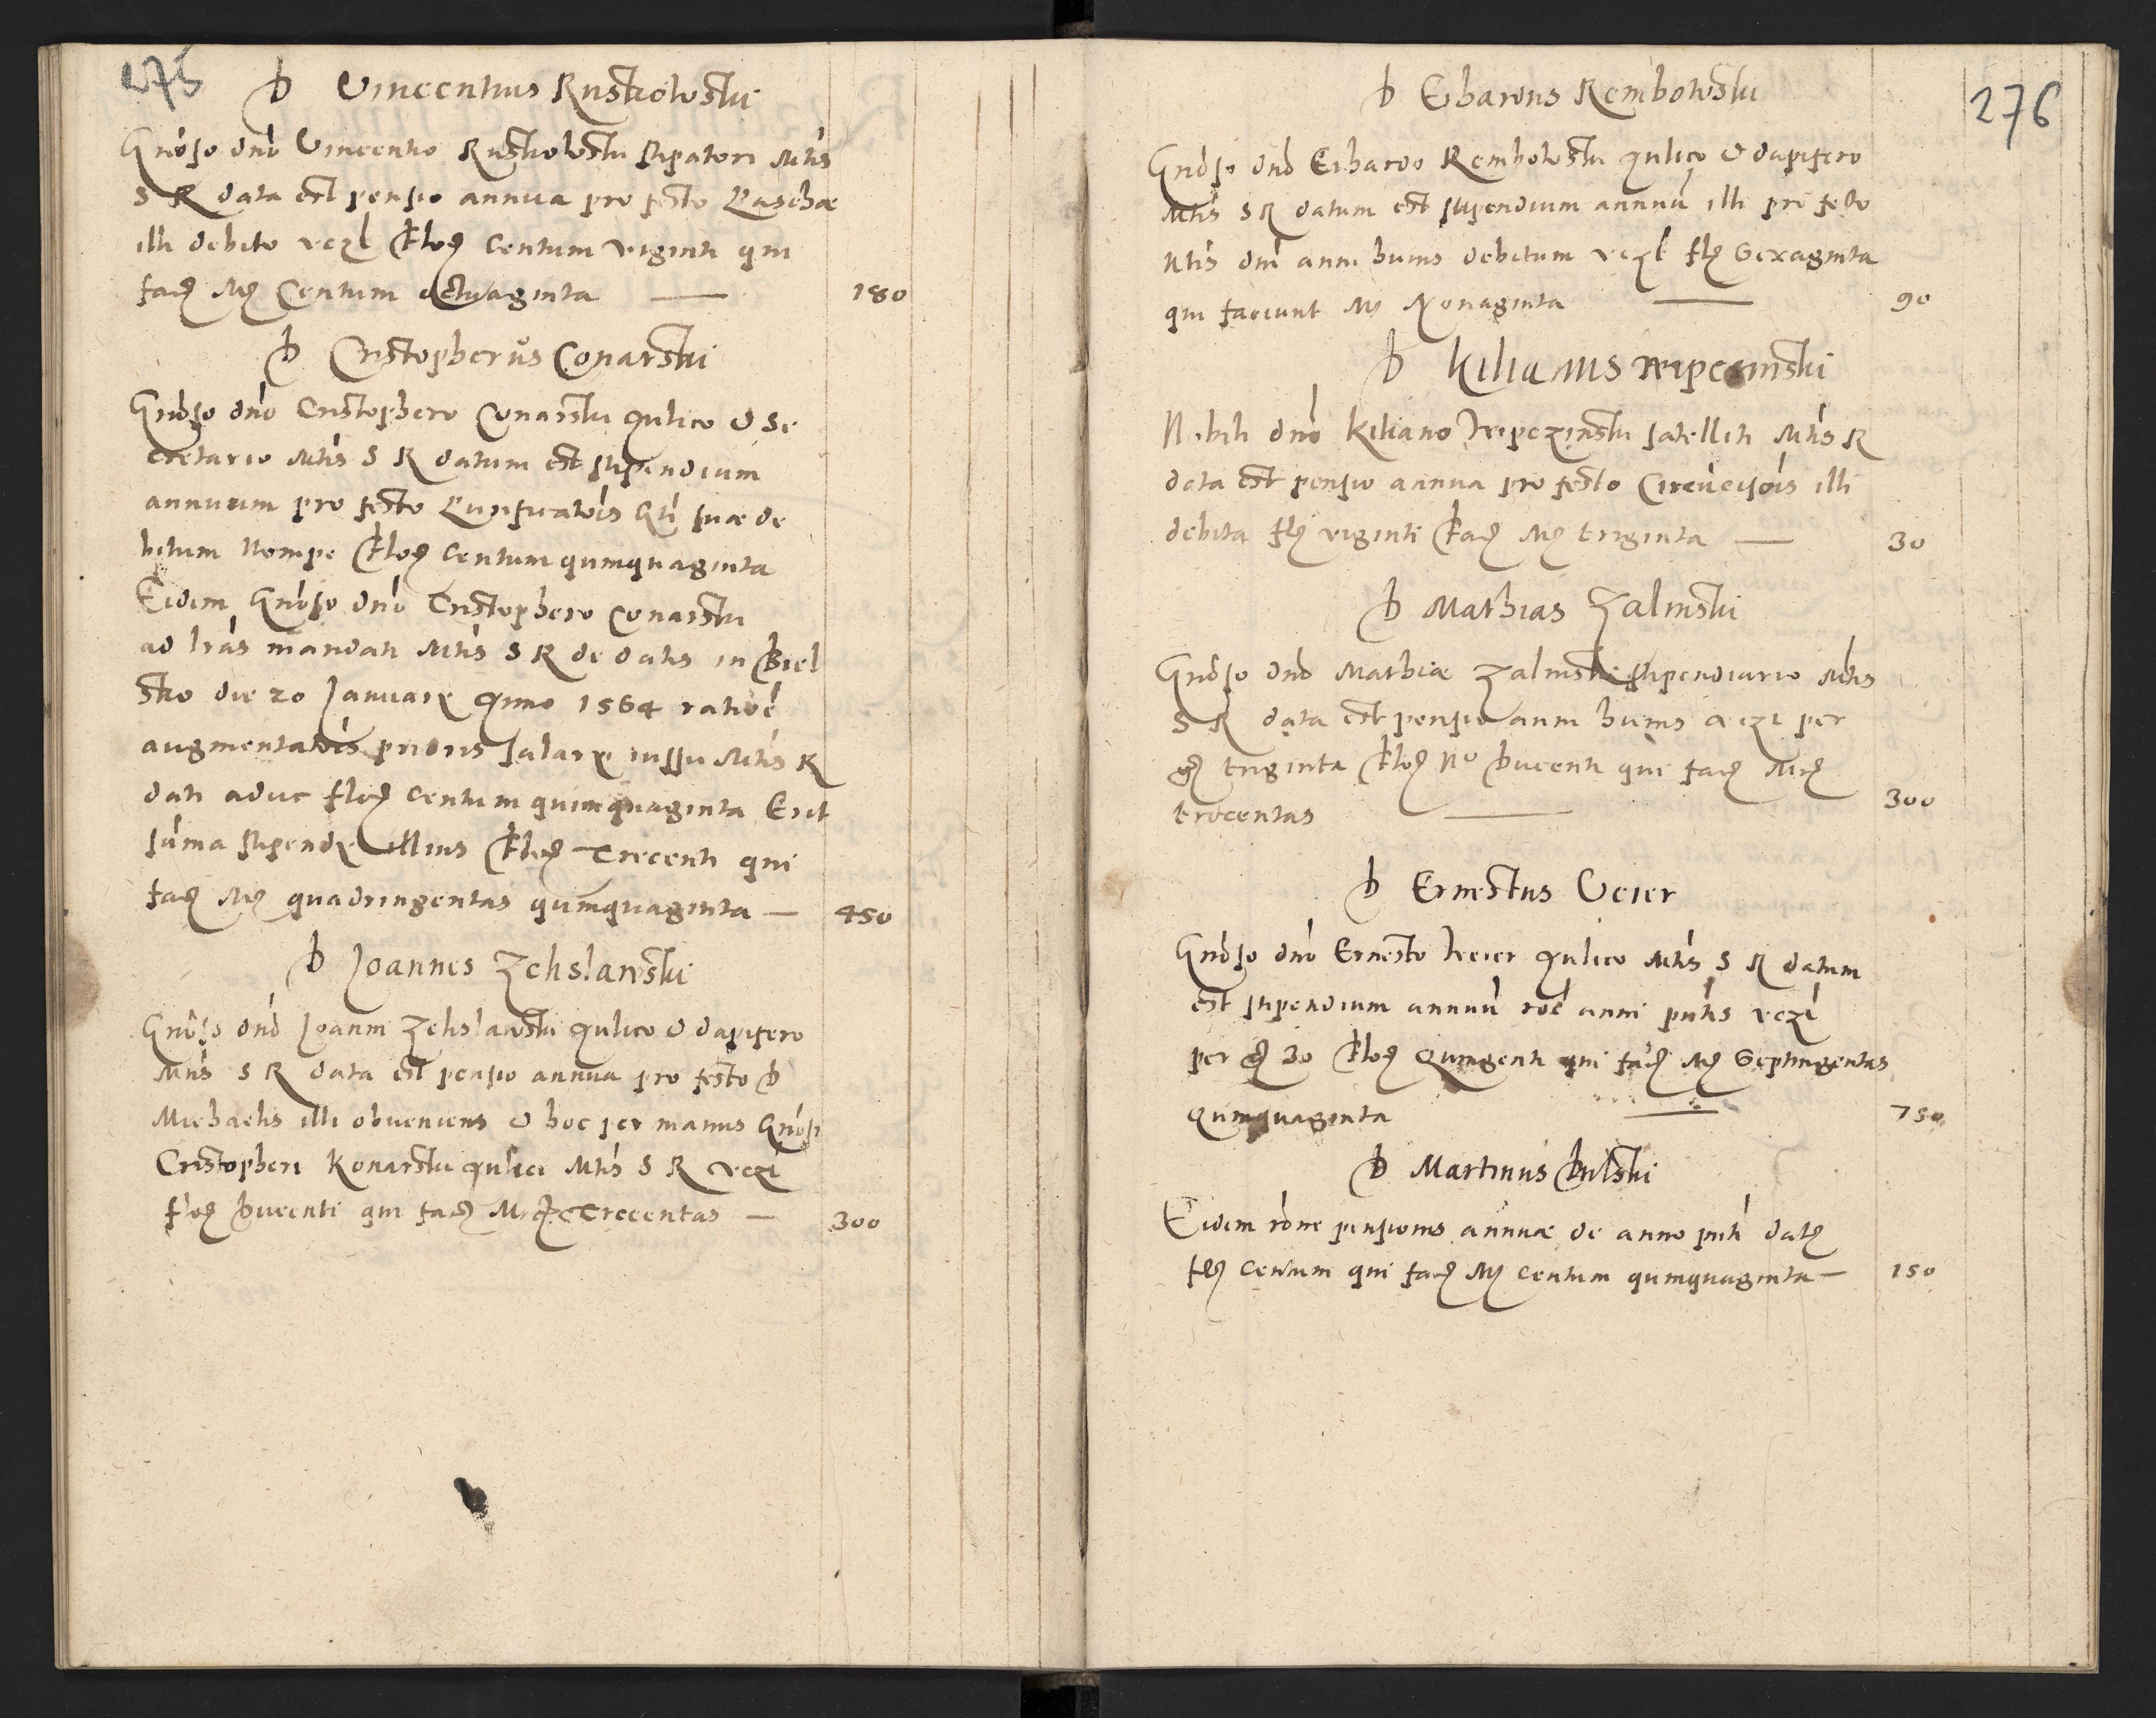 275
D Vincentius Ruskowski
Gnoso dno Vincentio Ruskowski stipatori Mtis
S R data est pensio annua pro festo Paschæ
illi debito vczl Floꝫ Centum viginti qui
faciꝫ Mꝫ Centum octuaginta — 180
D Cristopherus Conarski
Gnoso dno Cristophero Conarski Aulico & Se
cretario Mtis S R datum est stipendium
annuum pro festo Purificatois Gti suæ de
bitum Nempe Floꝫ Centum quinquaginta
Eidem Gnoso dno Cristophero Conarski
ad lras mandati Mtis S R de datis in Biel
sko die 20 Januarii Anno 1564 ratioe
augmentatois prioris salarii iussu Mtis R
dati aduc floꝫ Centum quinquaginta Erit
suma stipendii illius Floꝫ Trecenti qui
faciꝫ Mꝫ quadringentas quinquaginta — 450
D Joannes Zehslawski
Gnoso dno Joanni Zehslawski Aulico & dapifero
Mtis S R data est pensio annua pro festo D
Michaelis illi obueniens & hoc per manus Gnosi
Cristopheri Konarski Aulici Mtis S R vczl
floꝫ Ducenti qui faciꝫ Mrcꝫ Trecentas — 300
276
D Erhardus Rembowski
Gnoso dno Erhardo Rembowski Aulico & dapifero
Mtis S R datum est stipendium annuu illi pro festo
Ntis dni anni huius debitum vczl flꝫ Sexaginta
qui faciunt Mꝫ Nonaginta — 90
D Kilianus Wipczinski
Nobili dno Kiliano Wipczinski satelliti Mtis R
data est pensio annua pro festo Circucisois illi
debita flꝫ viginti Faciꝫ Mꝫ triginta — 30
D Mathias Zalinski
Gnoso dno Mathiæ Zalinski stipendiario Mtis
S R data est pensio anni huius vczl per
gꝫ triginta Floꝫ No Ducenti qui faciꝫ Mrcꝫ
trecentas — 300
D Ernestus Veier
Gnoso dno Ernesto Weier Aulico Mtis S R datum
est stipendium annuu roe anni pntis vczl
per gꝫ 30 Floꝫ Quingenti qui faciꝫ Mꝫ Septingentas
Quinquaginta — 750
D Martinus Dulski
Eidem rone pensionis annuæ de anno pnti datꝫ
flꝫ Centum qui faciꝫ Mꝫ Centum quinquaginta — 150